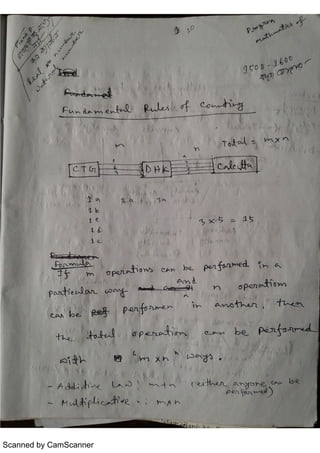 Real number
Natural number
1 10
Program
mathematics of
1500 - 1600
Fundamental Rules of Counting
m n Total = m×n
CTG DHK Calcutta
1a 2a 3a
1b
1c
1d
1e
3 × 5 = 15
Formula
If m operations can be performed in a
particular way and n operation
can be performen in another, then
the total operation can be performed
with "m × n" ways.
- Additive Law: m+n (either anyone can be
performed)
- Multiplicative ": m×n
Scanned by CamScanner